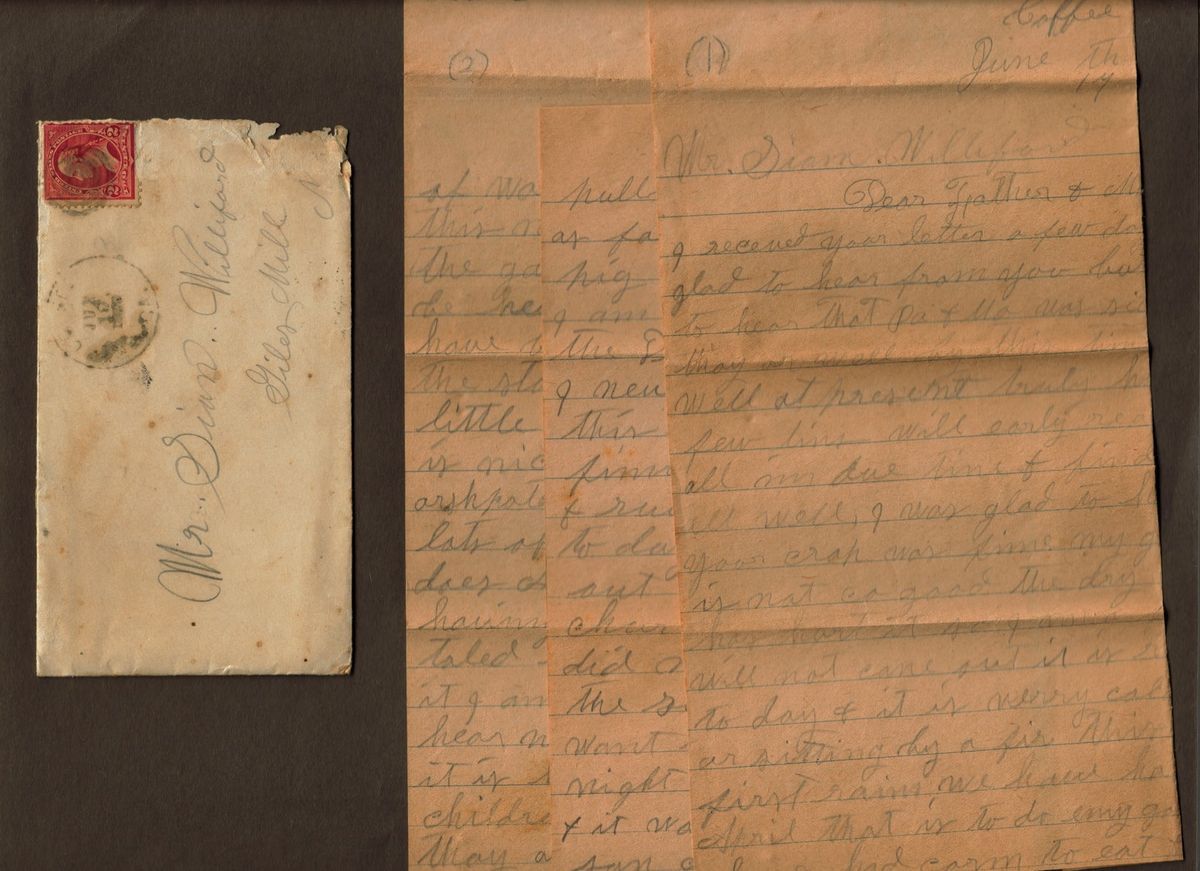 Mr. Siam. Williford
Giles Mill
N
(2)
of wa
this n
the ga
be hea
have
the sto
little
is nic
lots of
does
having
taled
it I am
hear n
it is s
childre
they a
pulle
as fa
pig
I am
the B
I neve
this
finn
& ru
to da
out
char
did n
the s
want
night
& it wa
(1)
Coffee
June th
17
Mr. Siam. Williford
Dear Father & M
I received your letter a few da
glad to hear from you but
to hear that Pa & Ma was si
they ar well by this time
well at present truly h
few lins will early rea
all in due time & find
all well, I was glad to h
your crop was fine my g
is not so good the dry
has hurt it so I am a
will not come out it is
to day & it is verry col
ar sitting by a fir this
first rain we have ha
April that is to do eny go
had corm to eat